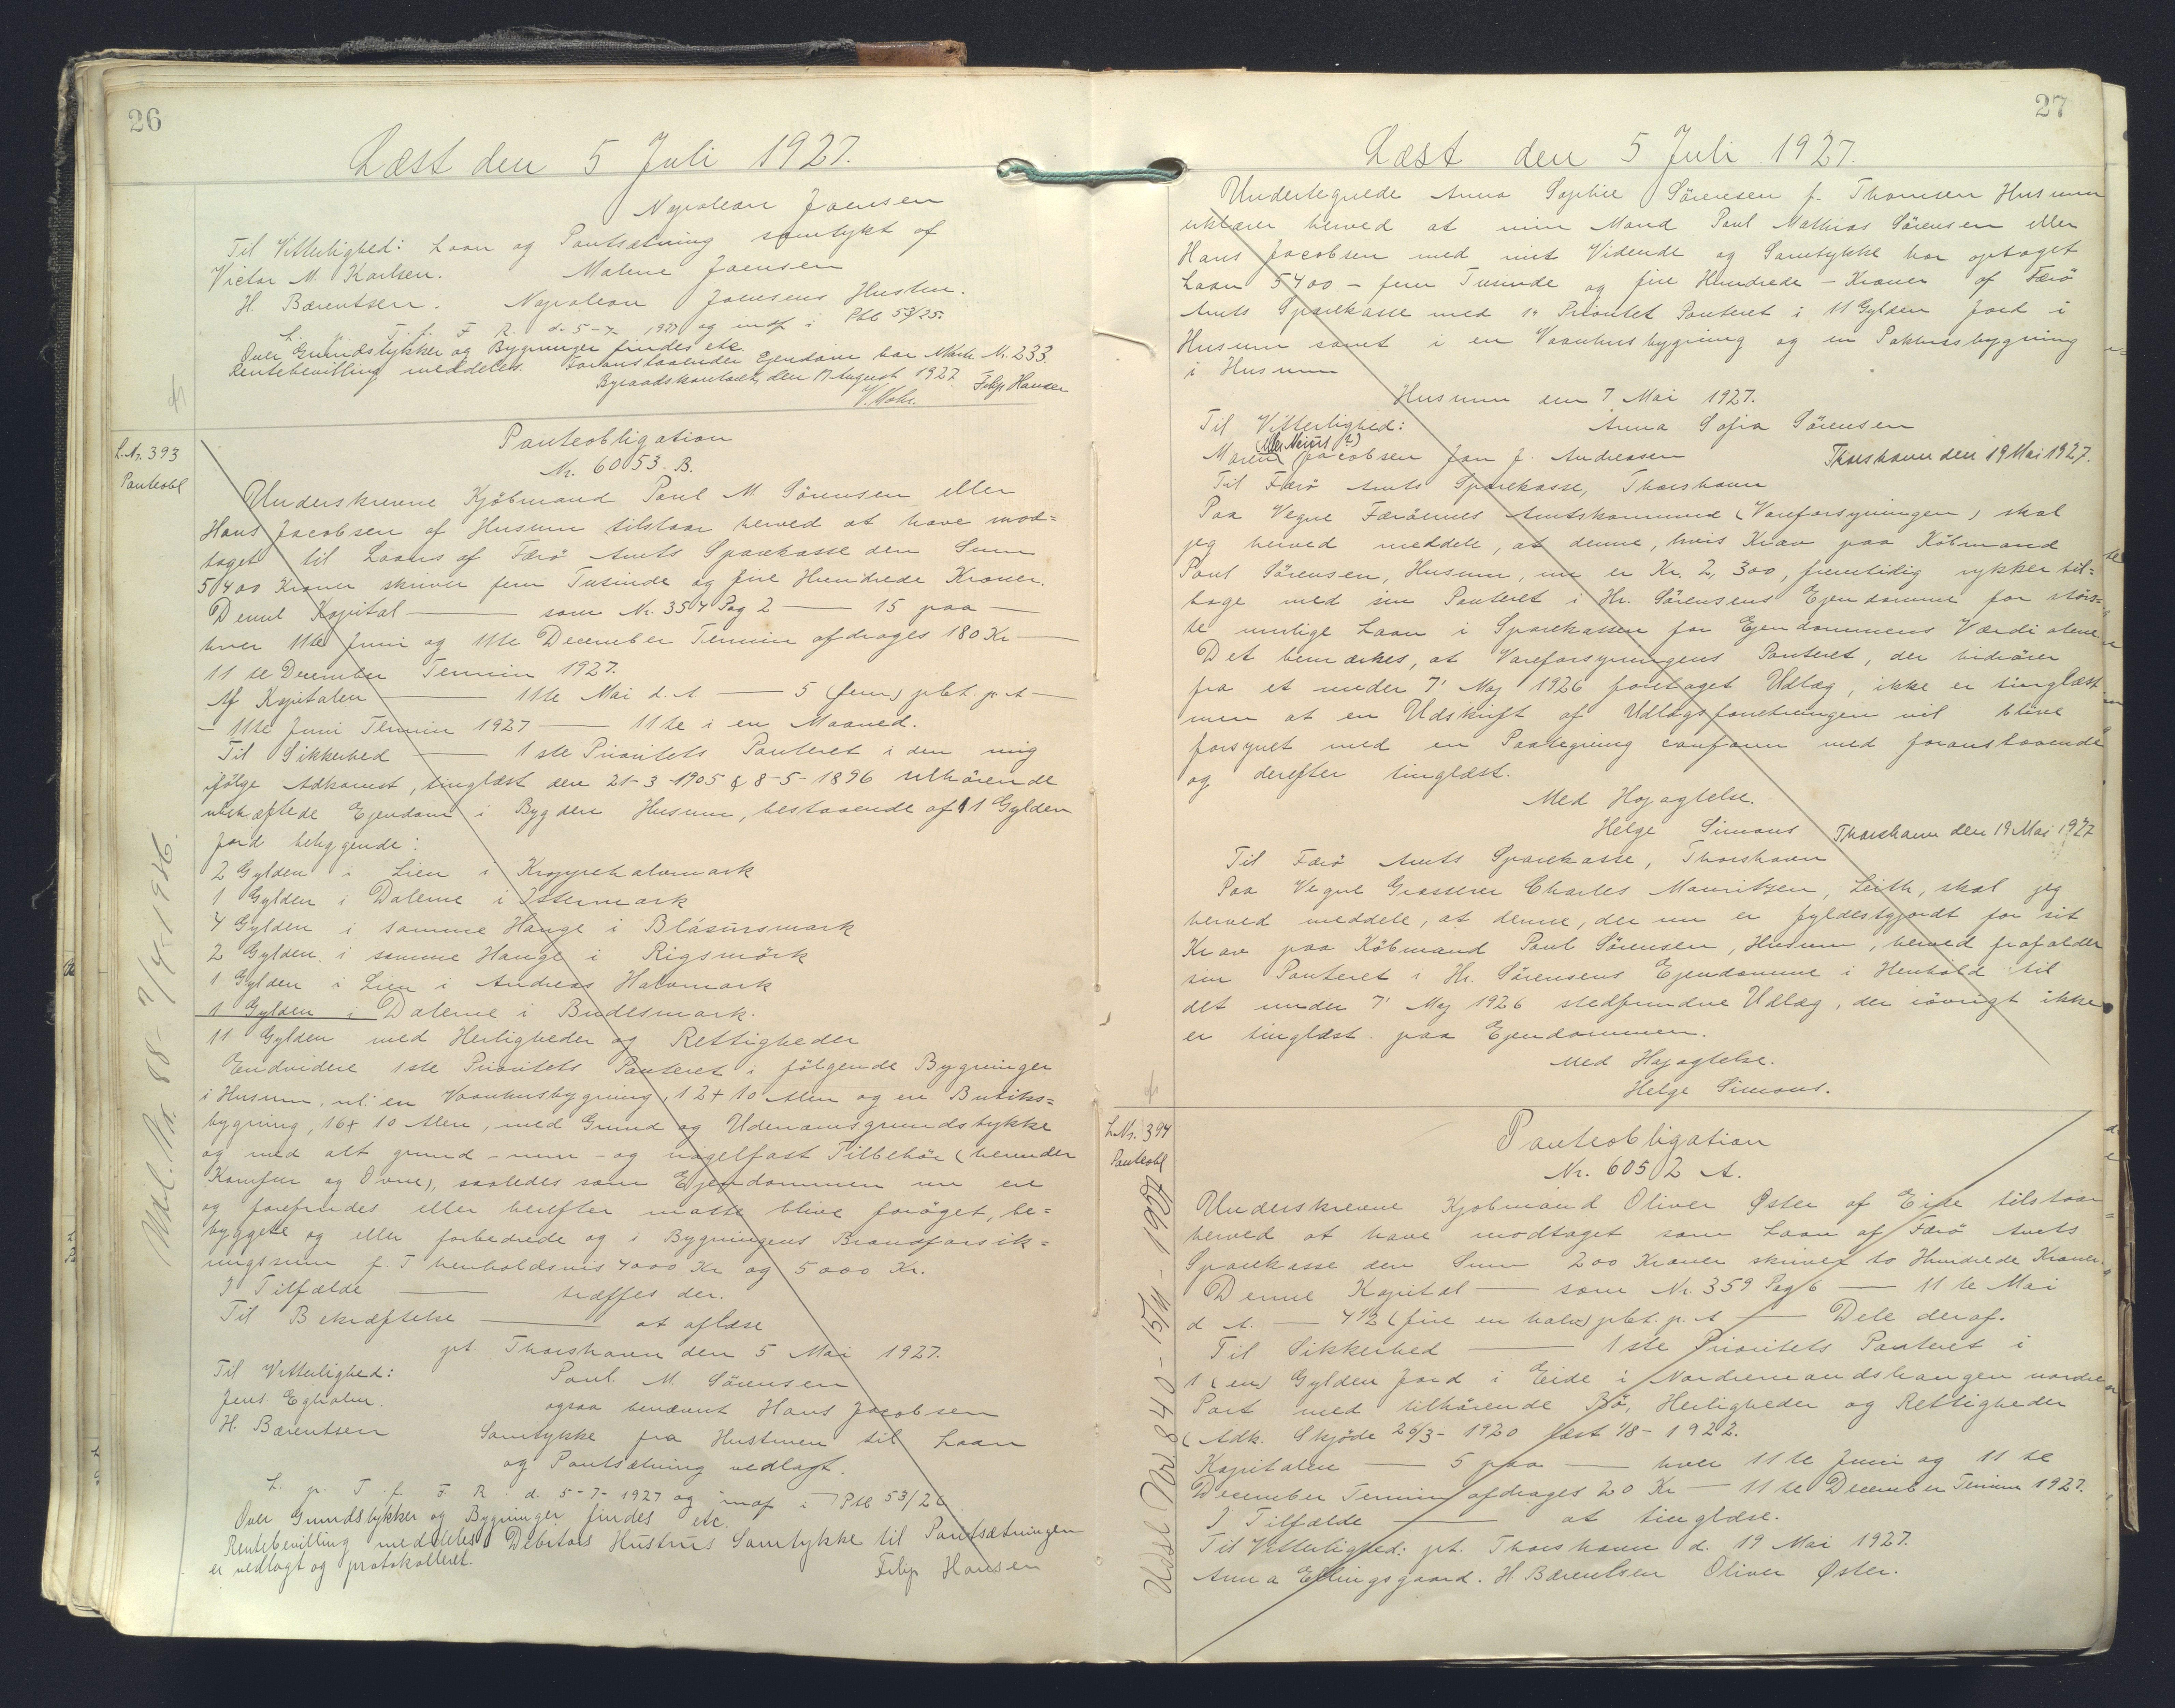 26
Læst den 5 Juli 1927.
Napoleon Joensen
Til Vitterlighed: Laan og Pantsætning samtykt af
Victor M. Karlsen. Malene Joensen
H. Bærentsen. Napoleon Joensens Hustru.
L. p. T. f. F. R. d. 5-7-1927 og indf i Ptk 53/25
Over Grundstykker og Bygninger findes etc.
Rentebevilling meddeles. Foranstaaende Ejendom har Matr. Nr. 233.
Byraadskontoret, den 17 August 1927. Filip Hansen
V. Mohr.
L. Nr. 393
Panteobl
Panteobligation
Nr. 6053. B.
Underskrevne Kjöbmand Poul M. Sörensen eller
Hans Jacobsen af Husum tilstaar herved at have mod=
taget til Laans af Færö Amts Sparekasse den Sum
5400 Kroner skriver fem Tusinde og fire Hundrede Kroner.
Denne Kapital — som Nr. 354 Pag 2 — 15 paa —
hver 11te Juni og 11te December Termin afdrages 180 Kr —
11 te December Termin 1927.
Af Kapitalen — 11te Mai d. A — 5 (fem) pCt. p. A —
- 11te Juni Termin 1927 — 11te i en Maaned.
Til Sikkerhed — 1ste Prioritets Panteret i den mig
ifölge Adkomst, tinglæst den 21-3-1905 & 8-5-1896 tilhörende
ubehæftede Ejendom i Bygden Husum, bestaaende af 11 Gylden
Jord beliggende:
2 Gylden i Lien i Kroppshalvmark
1 Gylden i Dalerne i Ístermark
4 Gylden i samme Hauge i Blásursmark
2 Gylden i samme Hauge i Rigsmörk
1 Gylden i Lien i Andreas Halvmark
1 Gylden i Dalerne i Budesmark.
11 Gylden med Herligheder og Rettigheder
Endvidere 1ste Prioritets Panteret i fölgende Bygninger
i Husum, nl: en Vaanhusbygning, 12 + 10 Alen og en Butiks=
bygning, 16 + 10 Alen, med Grund og Udenomsgrundstykke
og med alt grund - mur - og nagelfast Tilbehör (herunder
Komfur og Ovne), saaledes som Ejendommen nu er
og forefindes eller herefter maatte blive foröget, be=
byggede og eller forbedrede og i Bygningens Brandforsik=
ringssum f. T henholdsvis 4000 Kr og 5000 Kr.
I Tilfælde — træffes der.
Til Bekræftelse — at aflæse
pt. Thorshavn den 5 Mai 1927.
Til Vitterlighed: Poul. M. Sörensen
Jens Egholm. ogsaa benævnt Hans Jacobsen
H. Bærentsen Samtykke fra Hustruen til Laan
og Pantsætning vedlagt.
L. p. T. f. F. R. d. 5-7-1927 og indf i Ptk 53/26
Over Grundstykker og Bygninger findes etc.
Rentebevilling meddeles. Debitors Hustrus Samtykke til Pantsætningen
er vedlagt og protokolleret.
Filip Hansen
Udsl. Nr. 88 - 7/4-1946.
27
Læst den 5 Juli 1927.
Undertegnede Anna Sophie Sörensen f. Thomsen Husum
erklærer herved at min Mand Poul Mathias Sörensen eller
Hans Jacobsen med mit Vidende og Samtykke har optaget
Laan 5400 - fem Tusinde og fire Hundrede - Kroner af Færö
Amts Sparekasse med 1ste Prioritet Panteret i 11 Gylden Jord i
Husum samt i en Vaanhusbygning og en Pakhusbygning
i Husum
Husum den 7 Mai 1927.
Til Vitterlighed: Anna Sofia Sörensen
Maren Jacobsen Jon J. Andreasen Thorshavn den 19 Mai 1927.
Til Færö Amts Sparekasse, Thorshavn
Paa Vegne Færöernes Amtskommune (Vareforsyningen) skal
jeg herved meddele, at denne, hvis Krav paa Köbmand
Poul Sörensen, Husum, nu er Kr. 2,300, fremtidig rykker til=
bage med sin Panteret i Hr. Sörensens Ejendomme for störs=
te mulige Laan i Sparekassen for Ejendommens Værdi alene
Det bemærkes, at Vareforsyningens Panteret, der hidrörer
fra et under 7' Maj 1926 foretaget Udlæg, ikke er tinglæst
men at en Udskrift af Udlægsforretningen vil blive
forsynet med en Paategning conform med foranstaaende
og derefter tinglæst.
Med Högagtelse.
Helge Simons Thorshavn den 19 Mai 1927
Til Færö Amts Sparekasse, Thorshavn
Paa Vegne Grosserer Charles Mouritzen, Leith, skal jeg
herved meddele, at denne, der nu er fyldestgjordt for sit
Krav paa Köbmand Poul Sörensen, Husum, herved frafalder
sin Panteret i Hr. Sörensens Ejendomme i Henhold til
det under 7' Maj 1926 stedfundne Udlæg, der iövrigt ikke
er tinglæst paa Ejendommen.
Med Högagtelse.
Helge Simons.
L. Nr. 394
Panteobl
Panteobligation
Nr. 6052 A.
Underskrevne Kjobmand Oliver Öster af Eide tilstaar
herved at have modtaget som Laan af Færö Amts
Sparekasse den Sum 200 Kroner skriver to Hundrede Kroner.
Denne Kapital — som Nr. 359 Pag 6 — 11 te Mai
d A. — 4½ (fire en halv) pCt. p. A — Dele deraf.
Til Sikkerhed — 1ste Prioritets Panteret i
1 (en) Gylden Jord i Eide i Nordremandshaugen nordre
Part med tilhörende Bö, Herligheder og Rettigheder
(Adk. Skjöde 26/3-1920 læst 1/8-1922.
Kapitalen — 5 paa — hver 11te Juni og 11 te
December Termin afdrages 20 Kr — 11 te December Termin 1927.
I Tilfælde — at tinglæse.
Til Vitterlighed: pt. Thorshavn d. 19 Mai 1927.
Anna Ellingsgaard. H. Bærentsen Oliver Öster.